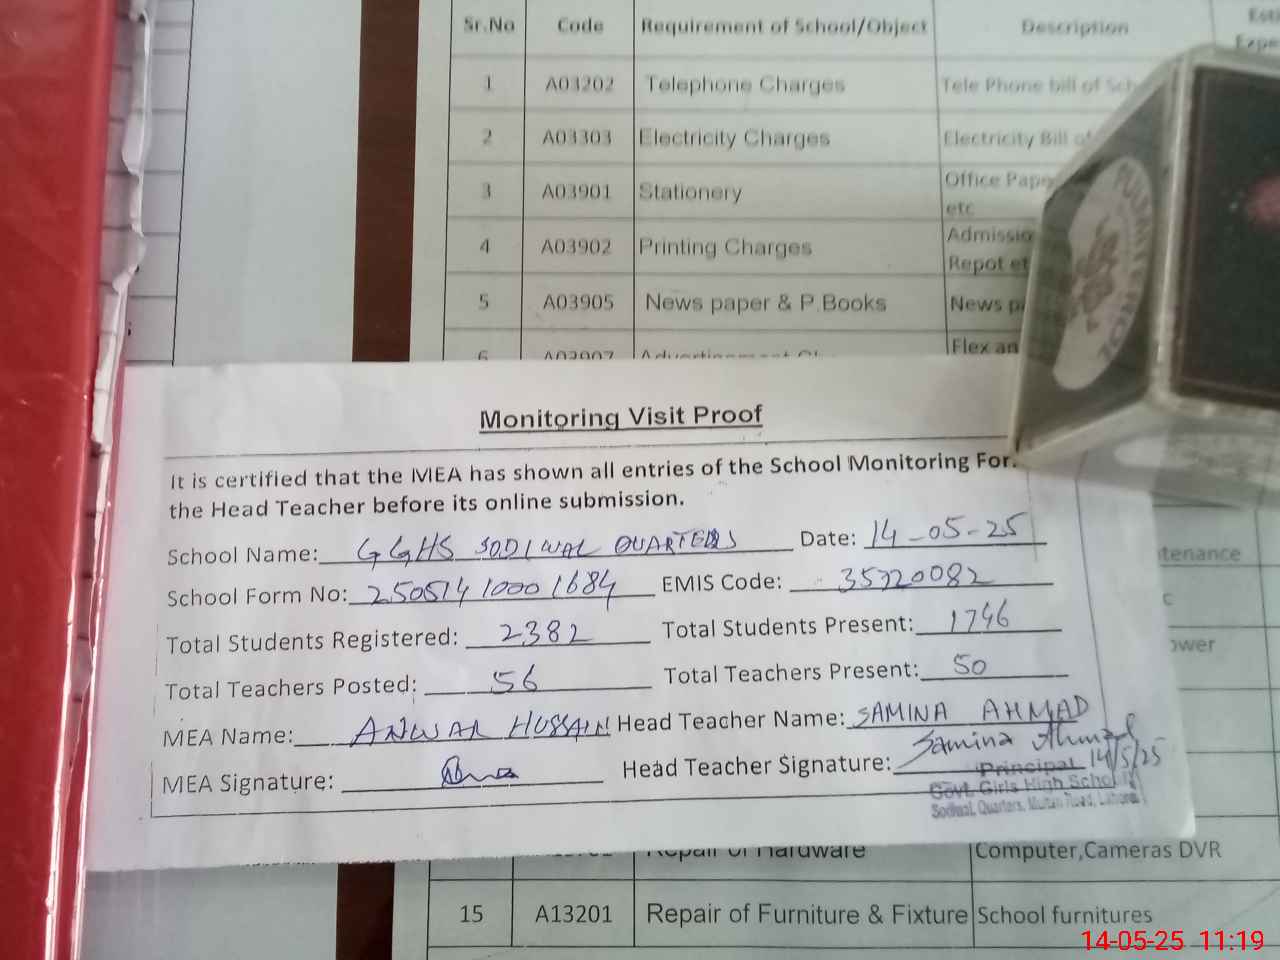 Sr.No Code Requirement of School/Object Description
1 A03202 Telephone Charges Tele Phone bill of
2 A03303 Electricity Charges Electricity Bill
3 A03901 Stationery Office
etc
4 A03902 Printing Charges
5 A03905 News paper & P.Books News
6 A03907 Flex an
Monitoring Visit Proof
It is certified that the MEA has shown all entries of the School Monitoring
the Head Teacher before its online submission.
School Name: GGHS SODIWAL QUARTERS Date: 14-05-25
School Form No: 25051410001684 EMIS Code: 35220082
Total Students Registered: 2382 Total Students Present: 1746
Total Teachers Posted: 56 Total Teachers Present: 50
MEA Name: ANWAR HUSSAIN Head Teacher Name: SAMINA AHMAD
MEA Signature: Head Teacher Signature: Samina Ahmad
Principal 14/5/25
Govt. Girls High School
Sodiwal, Quarters, Multan Road, Lahore
Repair of Hardware Computer,Cameras DVR
15 A13201 Repair of Furniture & Fixture School furnitures
14-05-25 11:19